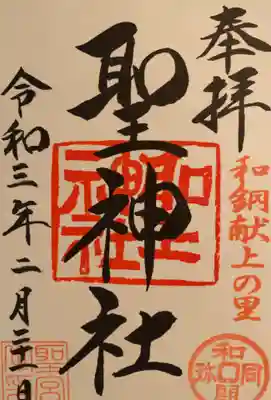 奉拝
和銅献上の里
和同開珎
聖神社
聖神社
令和三年二月二十一日